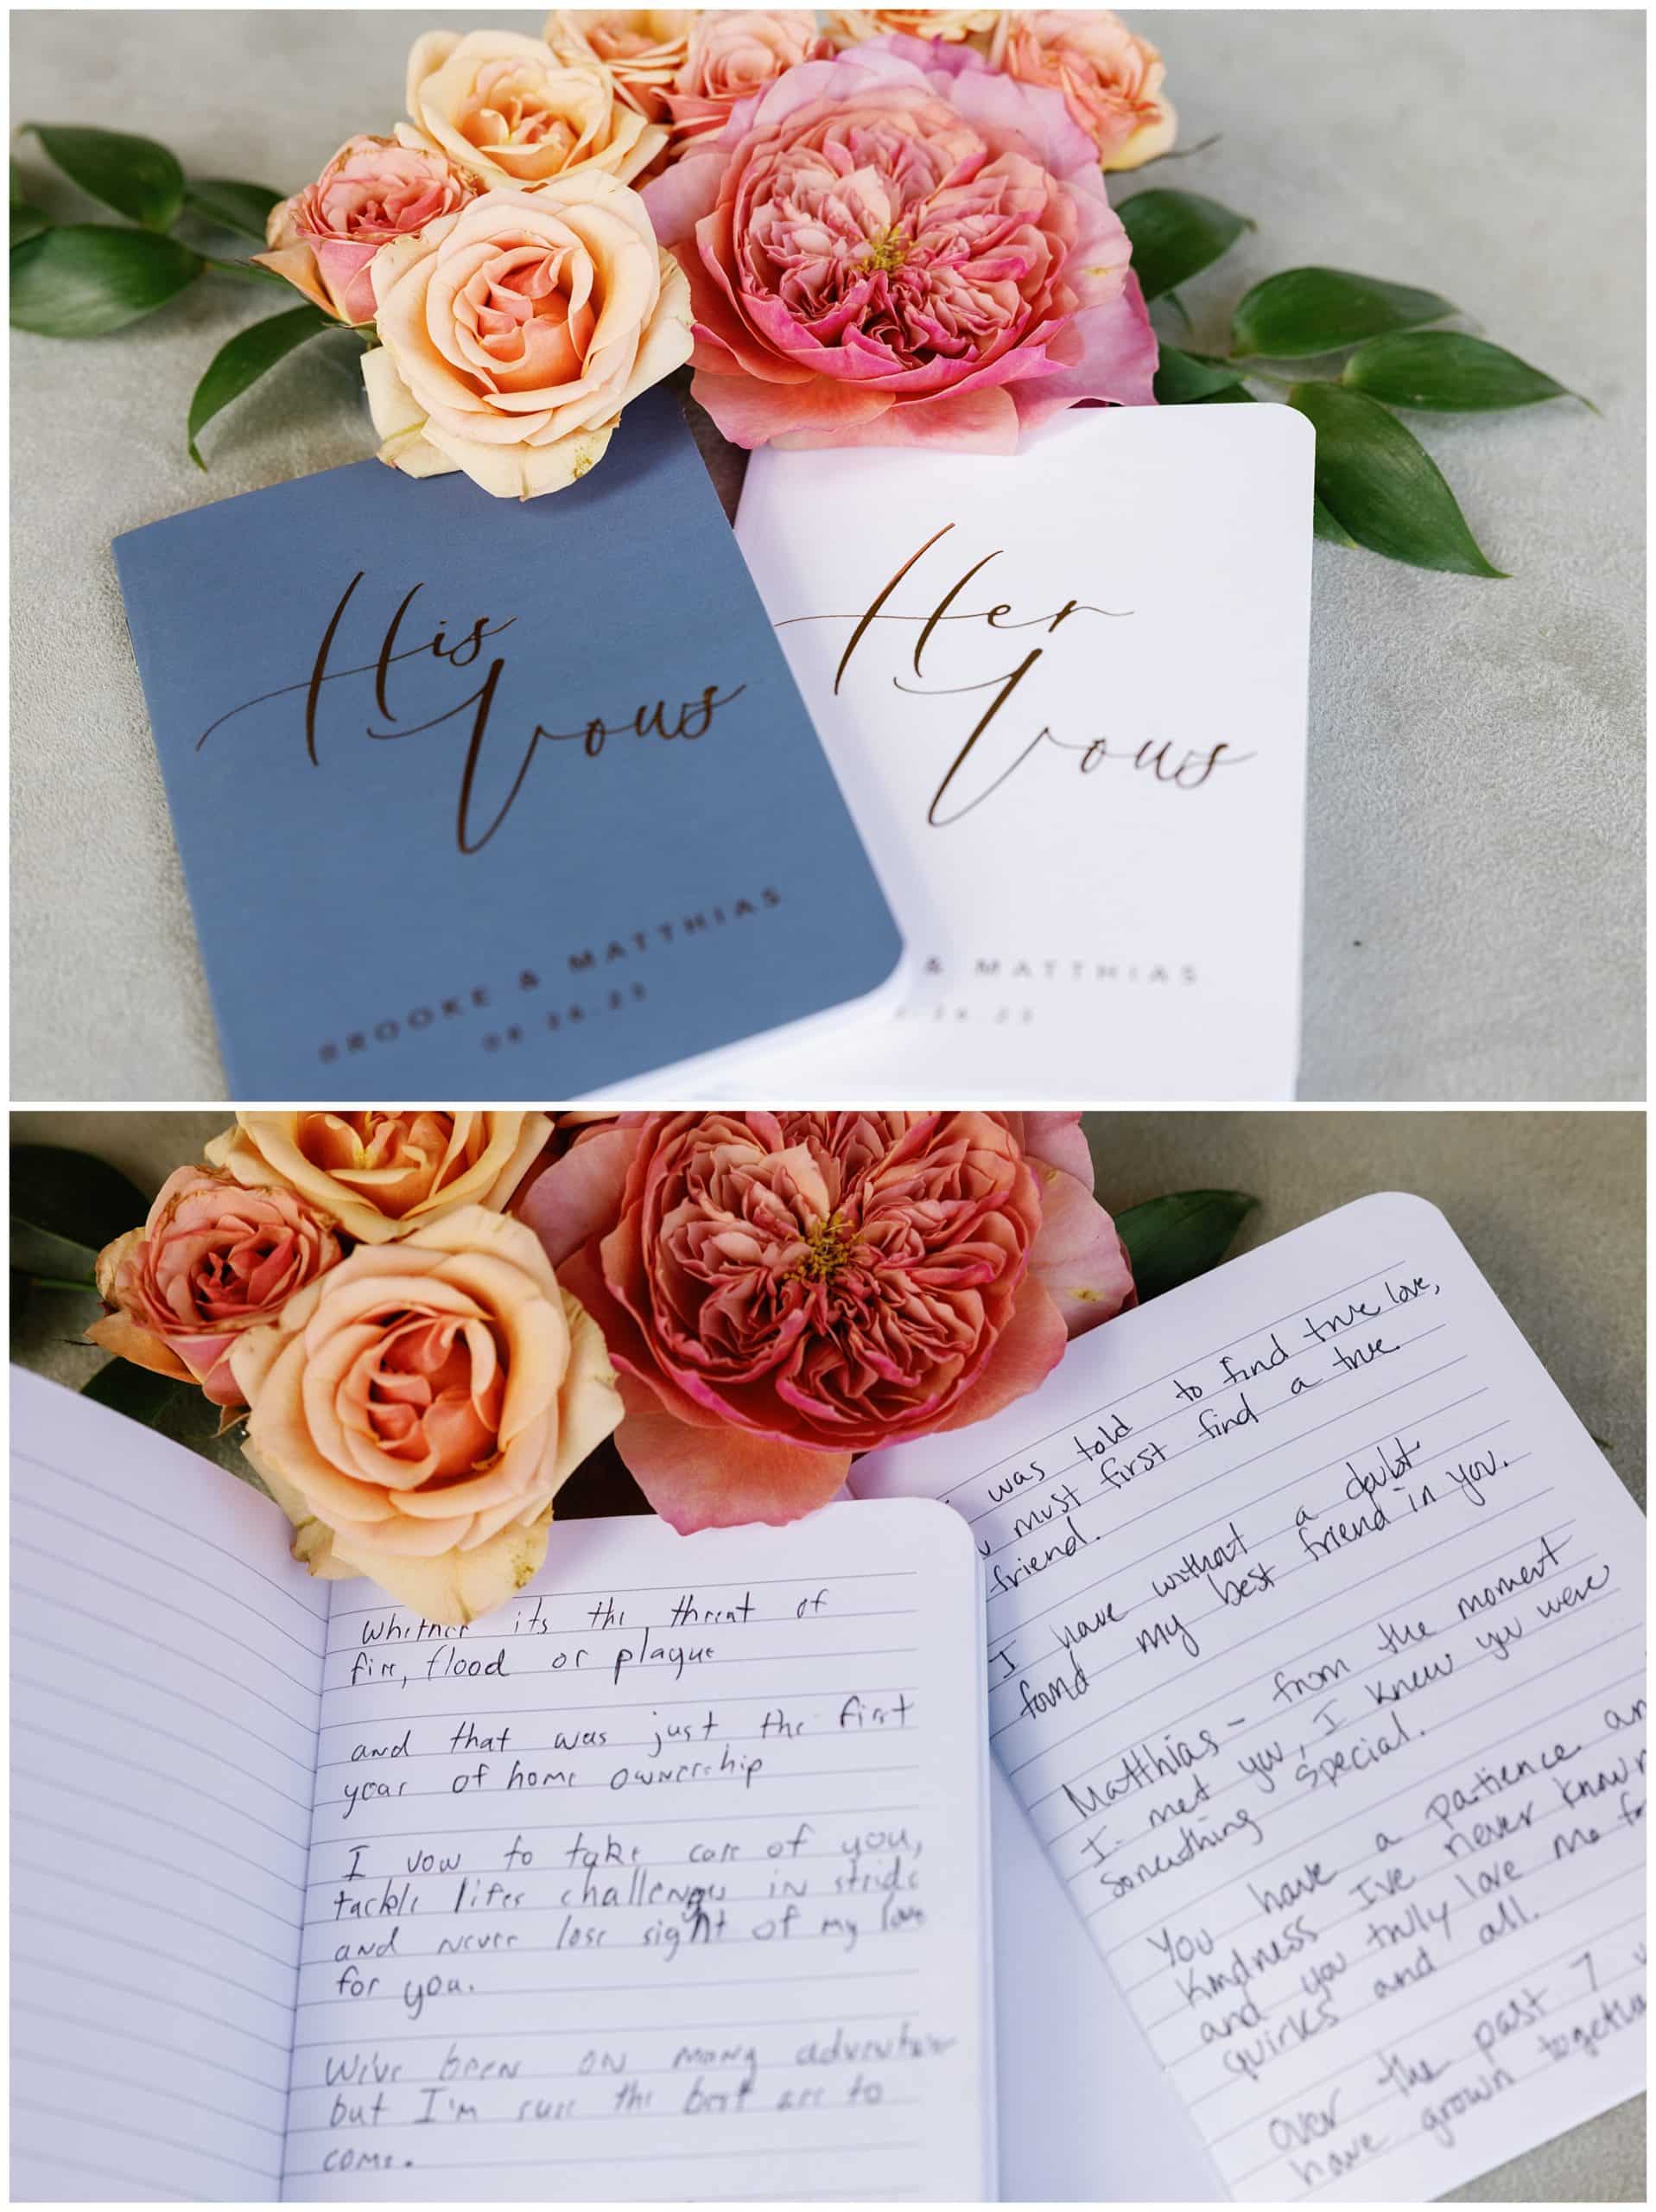 His
Vows
BROOKE & MATTHIAS
08.26.23
Her
Vows
& MATTHIAS
26.23
Whether its the threat of
fire, flood or plague
and that was just the first
year of home ownership
I vow to take care of you,
tackle lifes challenges in stride
and never lose sight of my love
for you.
We've been on many adventures
but I'm sure the best are to
come.
was told to find true love,
must first find a true
friend.
I have without a doubt
found my best friend in you.
Matthias - from the moment
I met you, I knew you were
something special.
You have a patience an
kindness I've never known
and you truly love me for
quirks and all.
Over the past 7
have grown together